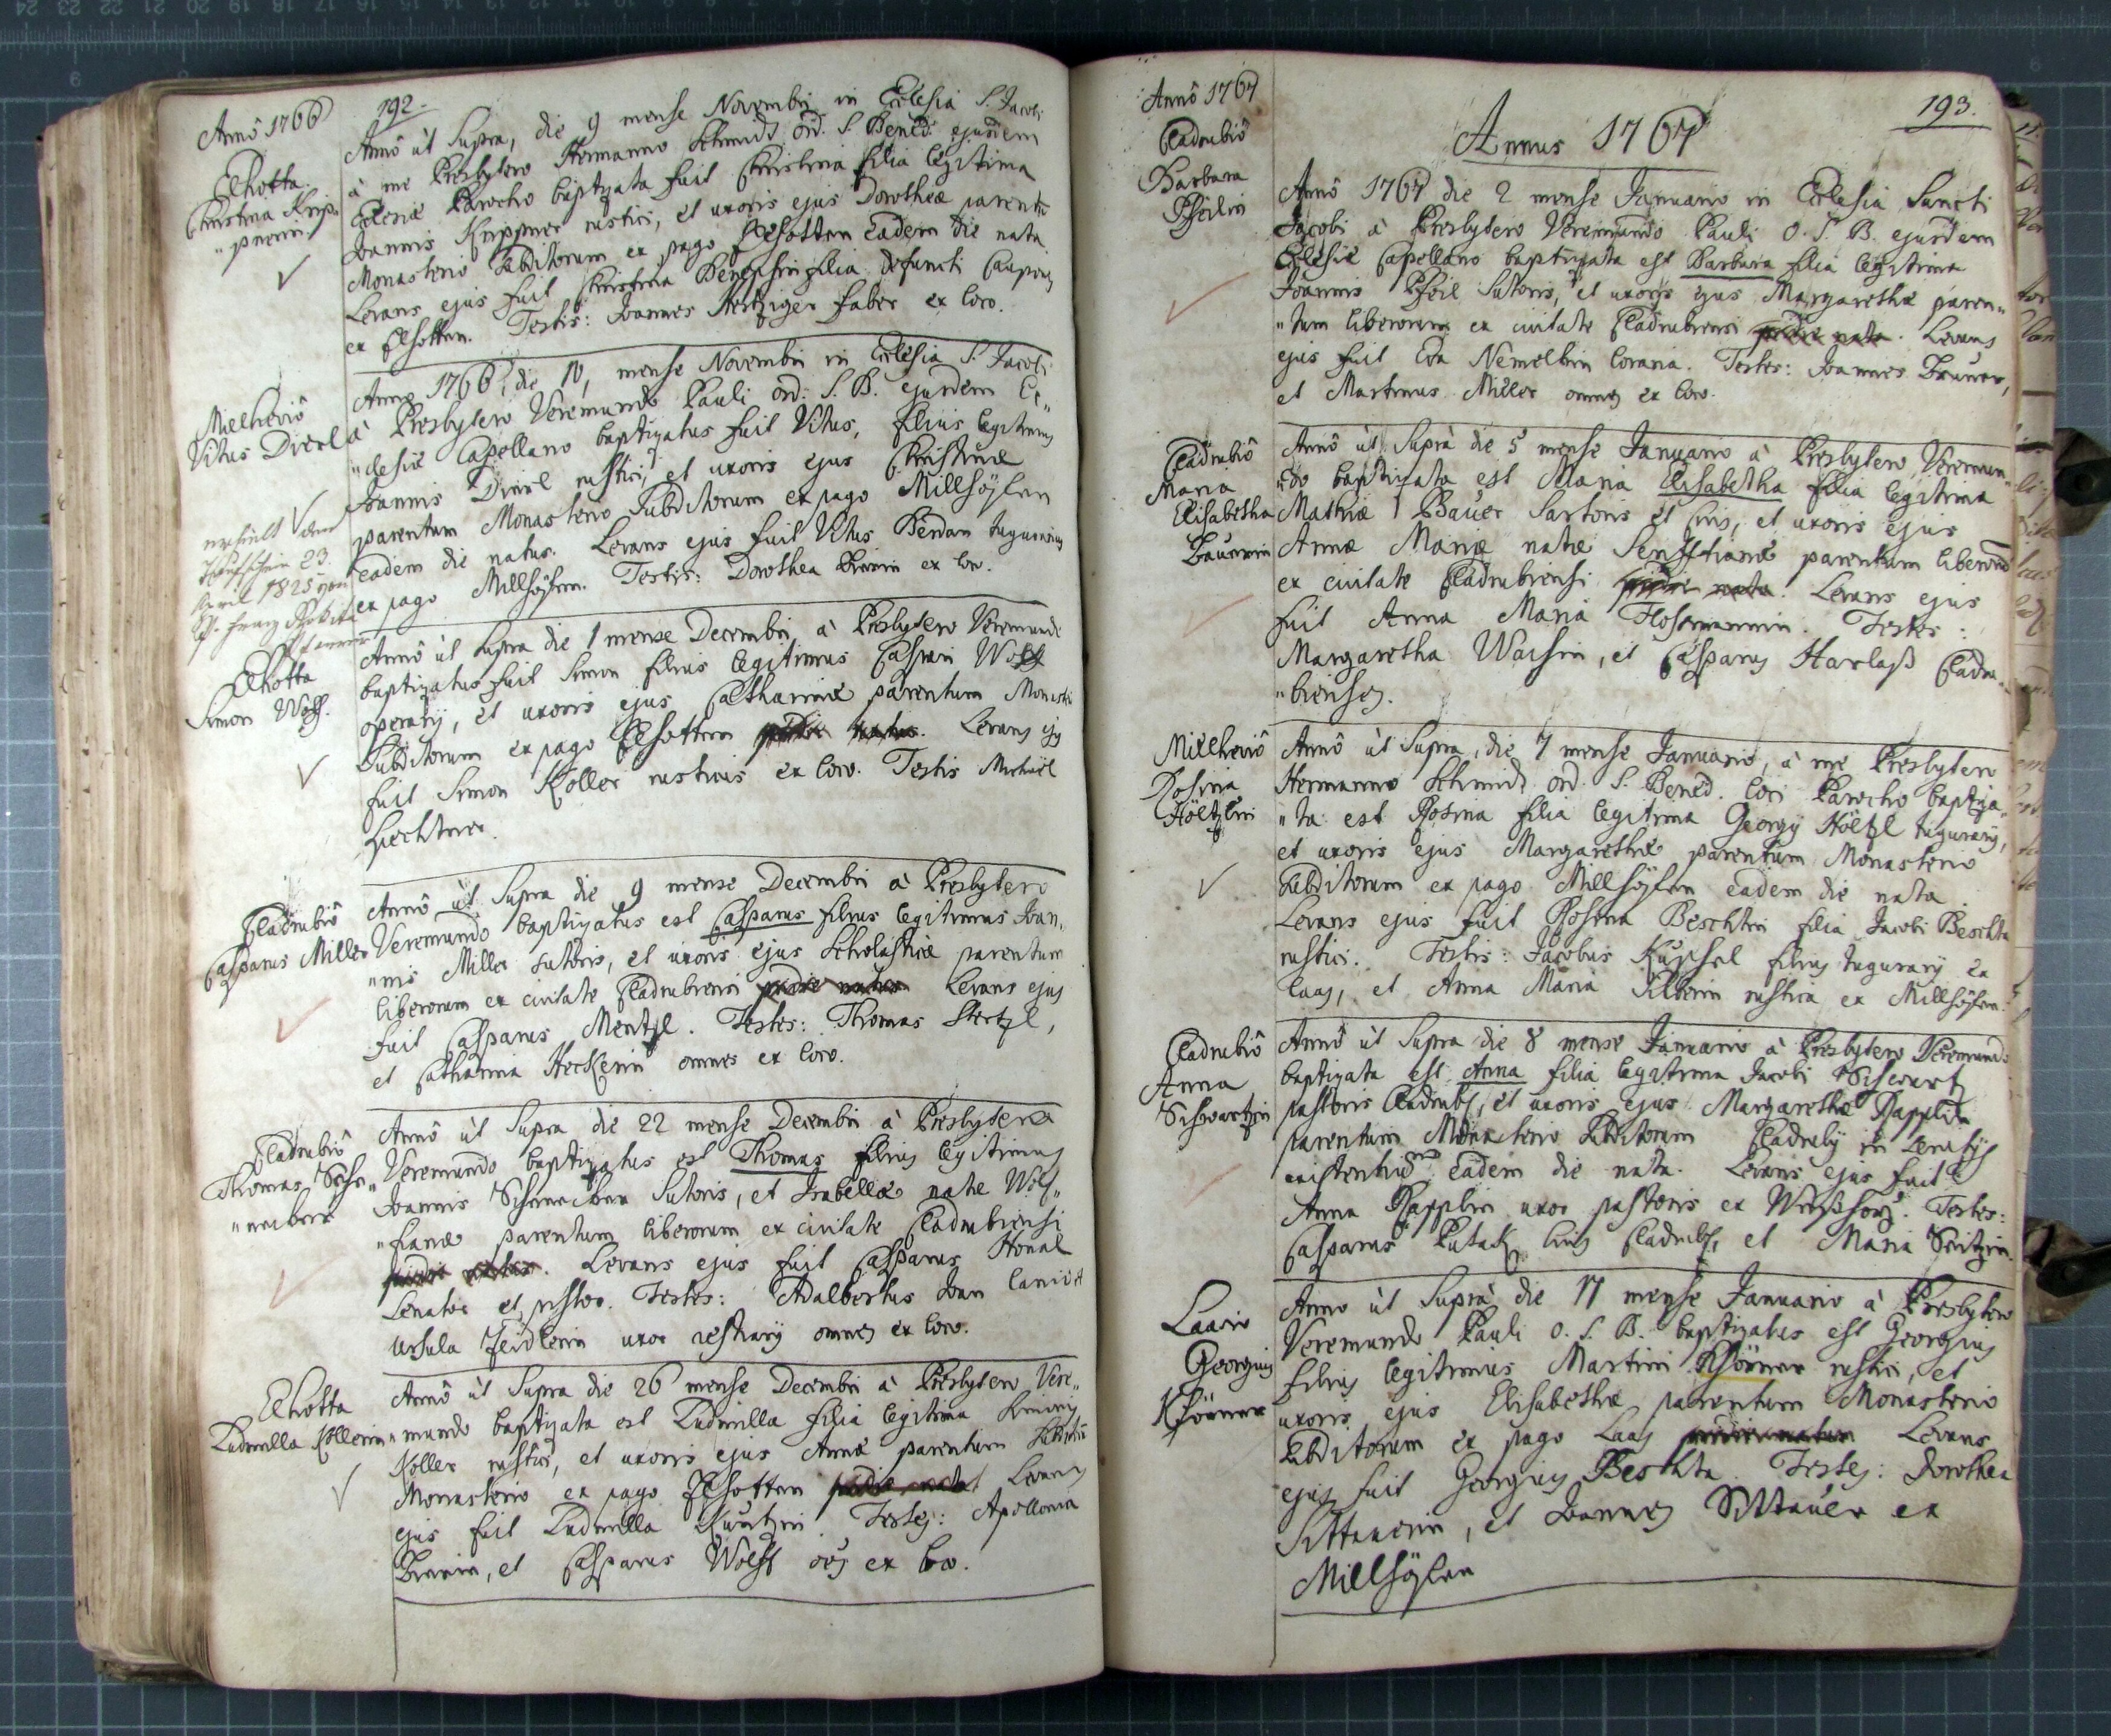 Anno 1766
192.
Lhotta
Christina Krip-
"pnerin
Anno ut Supra, die 9 mense Novembri in Eclesia S. Jacobi
à me Presbytero Hermanno Schmidt ord. S. Bened. ejusdem
Eclesiæ Parocho baptizata fuit Christina filia legitima
Joannis Krippner rustici, et uxoris ejus Dorotheæ parentum
Monasterio subditorum ex pago Elhotten Eadem die nata
Levans ejus fuit Christina filia defuncti
ex Elhotten. Testis: Joannes Hertziger faber ex loco.
Mielhevio
Vitus Dierl
Anno 1766 die 10, mense Novembri in Eclesia S. Jacobi
à Presbytero Veremundo Pauli ord: S. B. ejusdem Ec"
"clesiæ Capellano baptizatus fuit Vitus, filius legitimus
Joannis Dierl rustici, et uxoris ejus Christinæ
parentum Monasterio Subditorum ex pago Millhöjfen
eadem die natus. Levans ejus fuit Vitus tugurarius
ex pago Millhöjfen. Testis: Dorothea ex loco.
erhielt den
Taufschein 23
April 1825 von
P. Franz
Pfarrer
Lhotta
Simon Wolf.
Anno ut Supra die 1 mense Decembri à Presbytero Veremundo
baptizatus fuit Simon filius legitimus Caspari Wolf
operarij, et uxoris ejus Catharinæ parentum Monasterio
Subditorum ex pago Elhotten pridie natus. Levans ejus
fuit Simon Koller rusticus ex loco. Testis Michaël
Liechtner.
Cladrubio
Casparus Miller
Anno ut Supra die 9 mense Decembri à Presbytero
Veremundo baptizatus est Casparus filius legitimus Joan"
"nis Miller sutoris, et uxoris ejus Scholasticæ parentum
liberorum ex civitate Cladrubiensi pridie natus Levans ejus
fuit Casparus Mentzl. Testes: Thomas Stertzl,
et Catharina Heckerin omnes ex loco.
Cladrubio
Thomas Sch"
"neiberr
Anno ut Supra die 22 mense Decembri à Presbytero
Veremundo baptizatus est Thomas filius legitimus
Joannis Schneiber Sutoris, et Isabellæ natæ Wolf"
"fianæ parentum liberorum ex civitate Cladrubiensi
pridie natus. Levans ejus fuit Casparus Honal
Senator et pistor. Testes: Adalbertus Joan
Ursula Feidlerin uxor omnes ex loco.
Lhotta
Ludmilla Kollerin
Anno ut Supra die 26 mense Decembri à Presbytero Vere"
"mundo baptizata est Ludmilla filia legitima Simonis
Koller rustici, et uxoris ejus Annæ parentum Subditorum
Monasterio ex pago Elhotten pridie nata. Levans
ejus fuit Ludmilla Testes: Apollonia
et Casparus Wolf ex loco.
Anno 1767
193.
Annus 1767
Cladrubio
Barbara
Pfeilin
Anno 1767 die 2 mense Januario in Eclesia Sancti
Jacobi à Presbytero Veremundo Pauli O. S. B. ejusdem
Eclesiæ Capellano baptizata est Barbara filia legitima
Joannis Pfeil Sutoris, et uxoris ejus Margarethæ paren"
"tum liberorum ex civitate Cladrubiensi pridie nata. Levans
ejus fuit Eva Nemelbin lovania. Testes: Joannes Brunner,
et Martinus Miller omnes ex loco.
Cladrubio
Maria
Elisabetha
Bauerrin
Anno ut Supra die 5 mense Januario à Presbytero Veremun"
"do baptizata est Maria Elisabetha filia legitima
Mathiæ Bauer Sartoris et Civis, et uxoris ejus
Annæ Mariæ natæ Senfftianæ parentum liberorum
ex civitate Cladrubiensi pridie nata. Levans ejus
fuit Anna Maria Hoffmannin. Testes:
Margaretha, et Casparus Harlaß Cladru"
"bienses.
Mielhevio
Rosina
Höltzlin
Anno ut Supra, die 7 mense Januario, à me Presbytero
Hermanno Schmidt ord. S. Bened. loci Parocho baptiza"
"ta est Rosina filia legitima Georgij Höltzl tugurarij,
et uxoris ejus Margarethæ parentum Monasterio
Subditorum ex pago Millhöjfen eadem die nata.
Levans ejus fuit Rosina Beschtin filia Jacobi Beschta
rustici. Testis: Jacobus filius tugurarij ex
Laas, et Anna Maria rustica ex Millhöjfen.
Cladrubio
Anna
Schwartzin
Anno ut Supra die 8 mense Januario à Presbytero Veremundo
baptizata est Anna filia legitima Jacobi Schwartz
pastoris Cladrub, et uxoris ejus Margarethæ
parentum Monasterio Subditorum Cladruby in
existentium Eadem die nata. Levans ejus fuit
Anna Rapplin uxor pastoris ex. Testes:
Casparus civis Cladrub, et Maria
Laaso
Georgius
Kßörner
Anno ut Supra die 17 mense Januario à Presbytero
Veremundo Pauli O. S. B. baptizatus est Georgius
filius legitimus Martini Kßörner rustici, et
uxoris ejus Elisabethæ parentum Monasterio
Subditorum ex pago Laas pridie natus Levans
ejus fuit Georgius Beschta. Testes: Dorothea
Sittauerin, et Joannes Sittauer ex
Millhöjfen